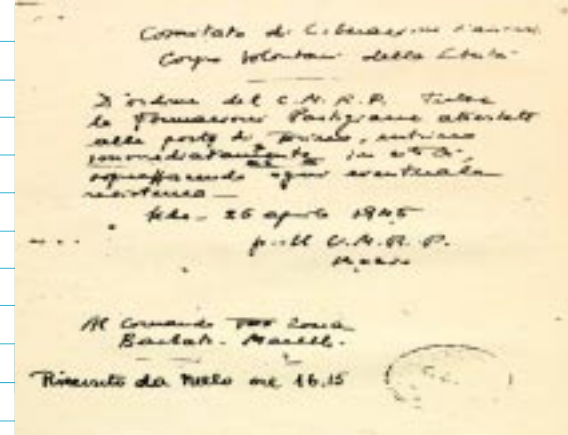 Comitato di Liberazione
Corpo Volontari della Libertà
D'ordine del C.M.R.P. Tutte
le Formazioni Partigiane attestate
alle porte di Torino, entrino
immediatamente in città,
sopraffacendo ogni eventuale
resistenza
26 aprile 1945
p. il C.M.R.P.
Al Comando zona
Barbato - Marcell.
Ricevuto da Nello ore 16,15